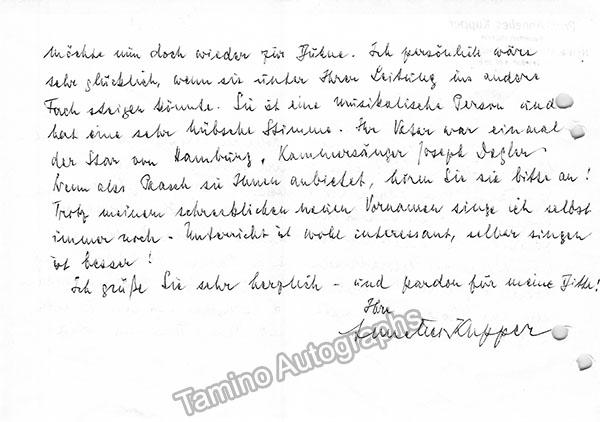 möchte nun doch wieder zur Bühne. Ich persönlich wäre
sehr glücklich, wenn sie unter Ihrer Leitung ins andere
Fach steigen könnte. Sie ist eine musikalische Person und
hat eine sehr hübsche Stimme. Ihr Vater war einmal
der Star von Hamburg, Kammersänger Joseph Degler.
Wenn also Paasch sie Ihnen anbietet, hören Sie sie bitte an!
Trotz meinem schrecklichen neuen Vornamen singe ich selbst
immer noch - Unterricht ist wohl interessant, selber singen
ist besser!
Ich grüße Sie sehr herzlich - und pardon für meine Bitte!
Ihre
Annelies Kupper
Tamino Autographs